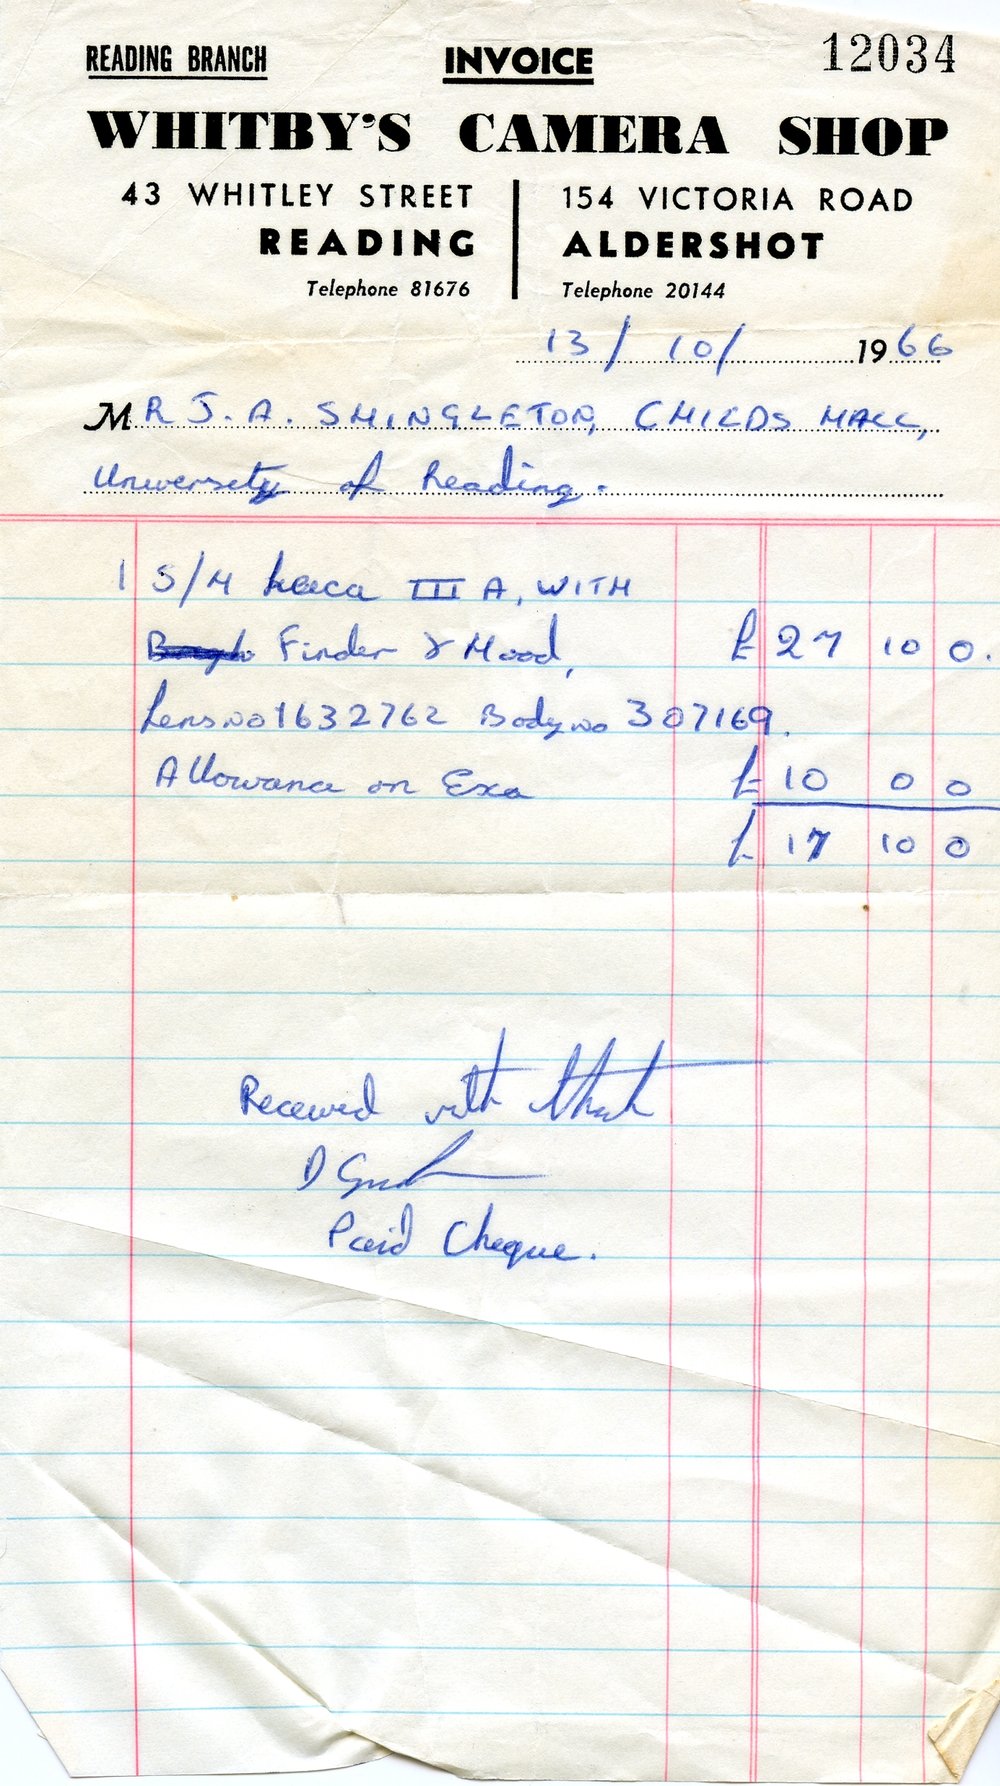 READING BRANCH INVOICE 12034
WHITBY'S CAMERA SHOP
43 WHITLEY STREET
READING
Telephone 81676
154 VICTORIA ROAD
ALDERSHOT
Telephone 20144
13/10/ 1966
MR J. A. SHINGLETON, CHILDS HALL,
University of Reading.
1 S/H Leica III A, WITH
Finder & Hood, £27 10 0.
Lens no 1632762 Body no 307169.
Allowance on Exa £10 0 0
£ 17 10 0
Received with thanks
D
Paid Cheque.